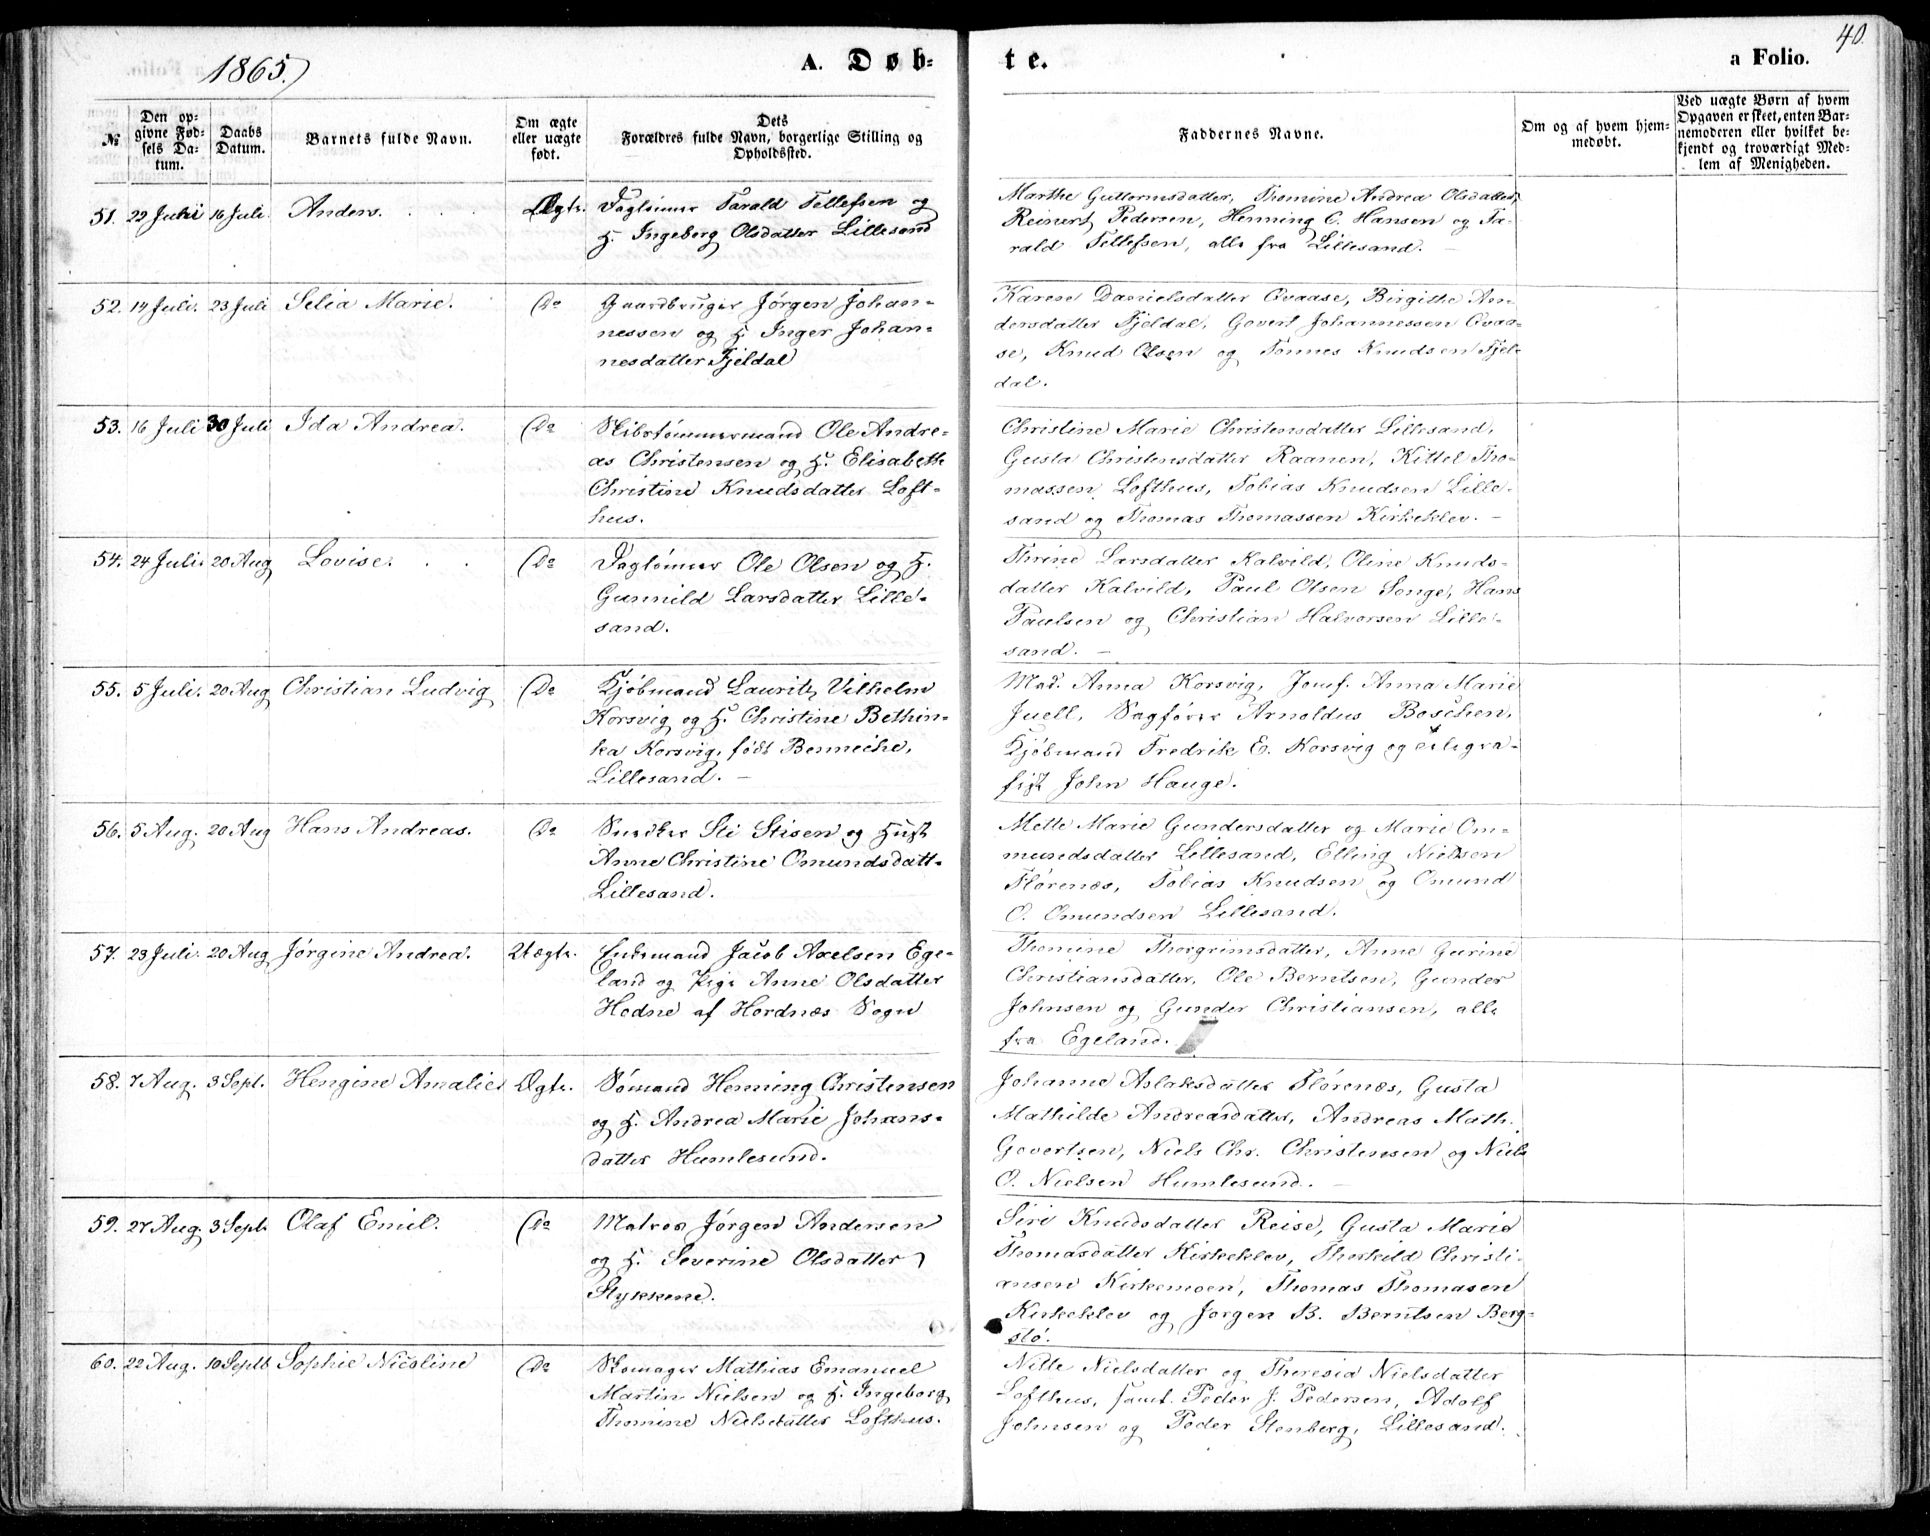 40.
1865.
A. Døb-
te.
a Folio.
№
Den op-
givne Fød-
sels Da-
tum.
Daabs
Datum.
Barnets fulde Navn.
Om ægte
eller uægte
født.
Dets
Forældres fulde Navn, borgerlige Stilling og
Opholdssted.
Faddernes Navne.
Om og af hvem hjem-
medøbt.
Ved uægte Børn af hvem
Opgaven er skeet, enten Bar-
nemoderen eller hvilket be-
kjendt og troværdigt Med-
lem af Menigheden.
51. 22 Juni 16 Juli Anders. Ægte.
Dagløinner Tarald Tellefsen og
H. Ingeborg Olsdatter Lillesand
Marthe Guttormsdatter, Thomine Andrea Olsdatter,
Reinert Pedersen, Henning C. Hansen og Ta-
rald Tellefsen, alle fra Lillesand. –
52. 14 Juli. 23 Juli Selia Marie. Do
Gaardbruger Jørgen Johan-
nessen og H. Inger Johan-
nesdatter Fjeldal
Karene Danielsdatter Qvaase, Birgitte An-
dersdatter Fjeldal, Govert Johannessen Qvaa-
se, Knud Olsen og Tønnes Knudsen Fjel-
dal.
53. 16 Juli 30 Juli Ida Andrea. Do
Skibstømmermand Ole Andre-
as Christensen og H. Elisabeth
Christine Knudsdatter Loft-
hus.
Christine Marie Christensdatter Lillesand,
Gusta Christensdatter Raanen, Kittel Tho-
massen Lofthus, Tobias Knudsen Lille-
sand og Thomas Thomassen Kirkeklev. –
54. 24 Juli. 20 Aug Lovise. Do
Dagløinner Ole Olsen og H.
Gunnild Larsdatter Lille-
sand.
Thrine Larsdatter Kalvild, Oline Knuds-
datter Kalvild, Paul Olsen Songe, Hans
Paulsen og Christian Halvorsen Lille-
sand. –
55. 5 Juli. 20 Aug Christian Ludvig Do
Kjøbmand Lauritz Vilhelm
Korsvig og H. Christine Bethin-
ka Korsvig, født Benneche,
Lillesand. –
Mad. Anna Korsvig, Jomf. Anna Marie
Juell, Sagfører Arnoldus Boschen,
Kjøbmand Fredrik E. Korsvig og
John Hauge.
56. 5 Aug. 20 Aug Hans Andreas. Do
Snedker Sti Stisen og Hust
Anne Christine Omundsdatt.
Lillesand.
Mette Marie Gundersdatter og Marie Om-
mundsdatter Lillesand, Elling Nielsen
Flørenæs, Tobias Knudsen og Omund
O. Omundsen Lillesand.
57. 23 Juli. 20 Aug Jørgine Andrea. Uægte.
Enkemand Jacob Axelsen Ege-
land og Pige Anne Olsdatter
Hodne af Hordnæs Sogn
Thomine Thorgrimsdatter, Anne Gurine
Christiansdatter, Ole Berntsen, Gunder
Johnsen og Gunder Christiansen, alle
fra Egeland.
58. 7 Aug. 3 Sept. Hengine Amalie Ægte.
Sømand Henning Christensen
og H. Andrea Marie Johans-
datter Humlesund.
Johanne Aslaksdatter Flørenæs, Gusta
Mathilde Andreasdatter, Andreas Math.
Govertsen, Niels Chr. Christensen og Niels
O. Nielsen Humlesund. –
59. 27 Aug. 3 Sept. Olaf Emil. Do
Matros Jørgen Andersen
og H. Severine Olsdatter
Stykkene.
Siri Knudsdatter Reise, Gusta Marie
Thomasdatter Kirkeklev, Therkild Christi-
ansen Kirkemoen, Thomas Thomasen
Kirkeklev og Jørgen B. Berntsen Berg-
stø.
60. 22 Aug. 10 Septb Sophie Nicoline Do
Skomager Mathias Emanuel
Martin Nielsen og H. Ingeborg
Thomine Nielsdatter Lofthus.
Nille Nielsdatter og Theresia Nielsdatter
Lofthus, samt Peder J. Pedersen, Adolf
Johnsen og Peder Stenberg, Lillesand.